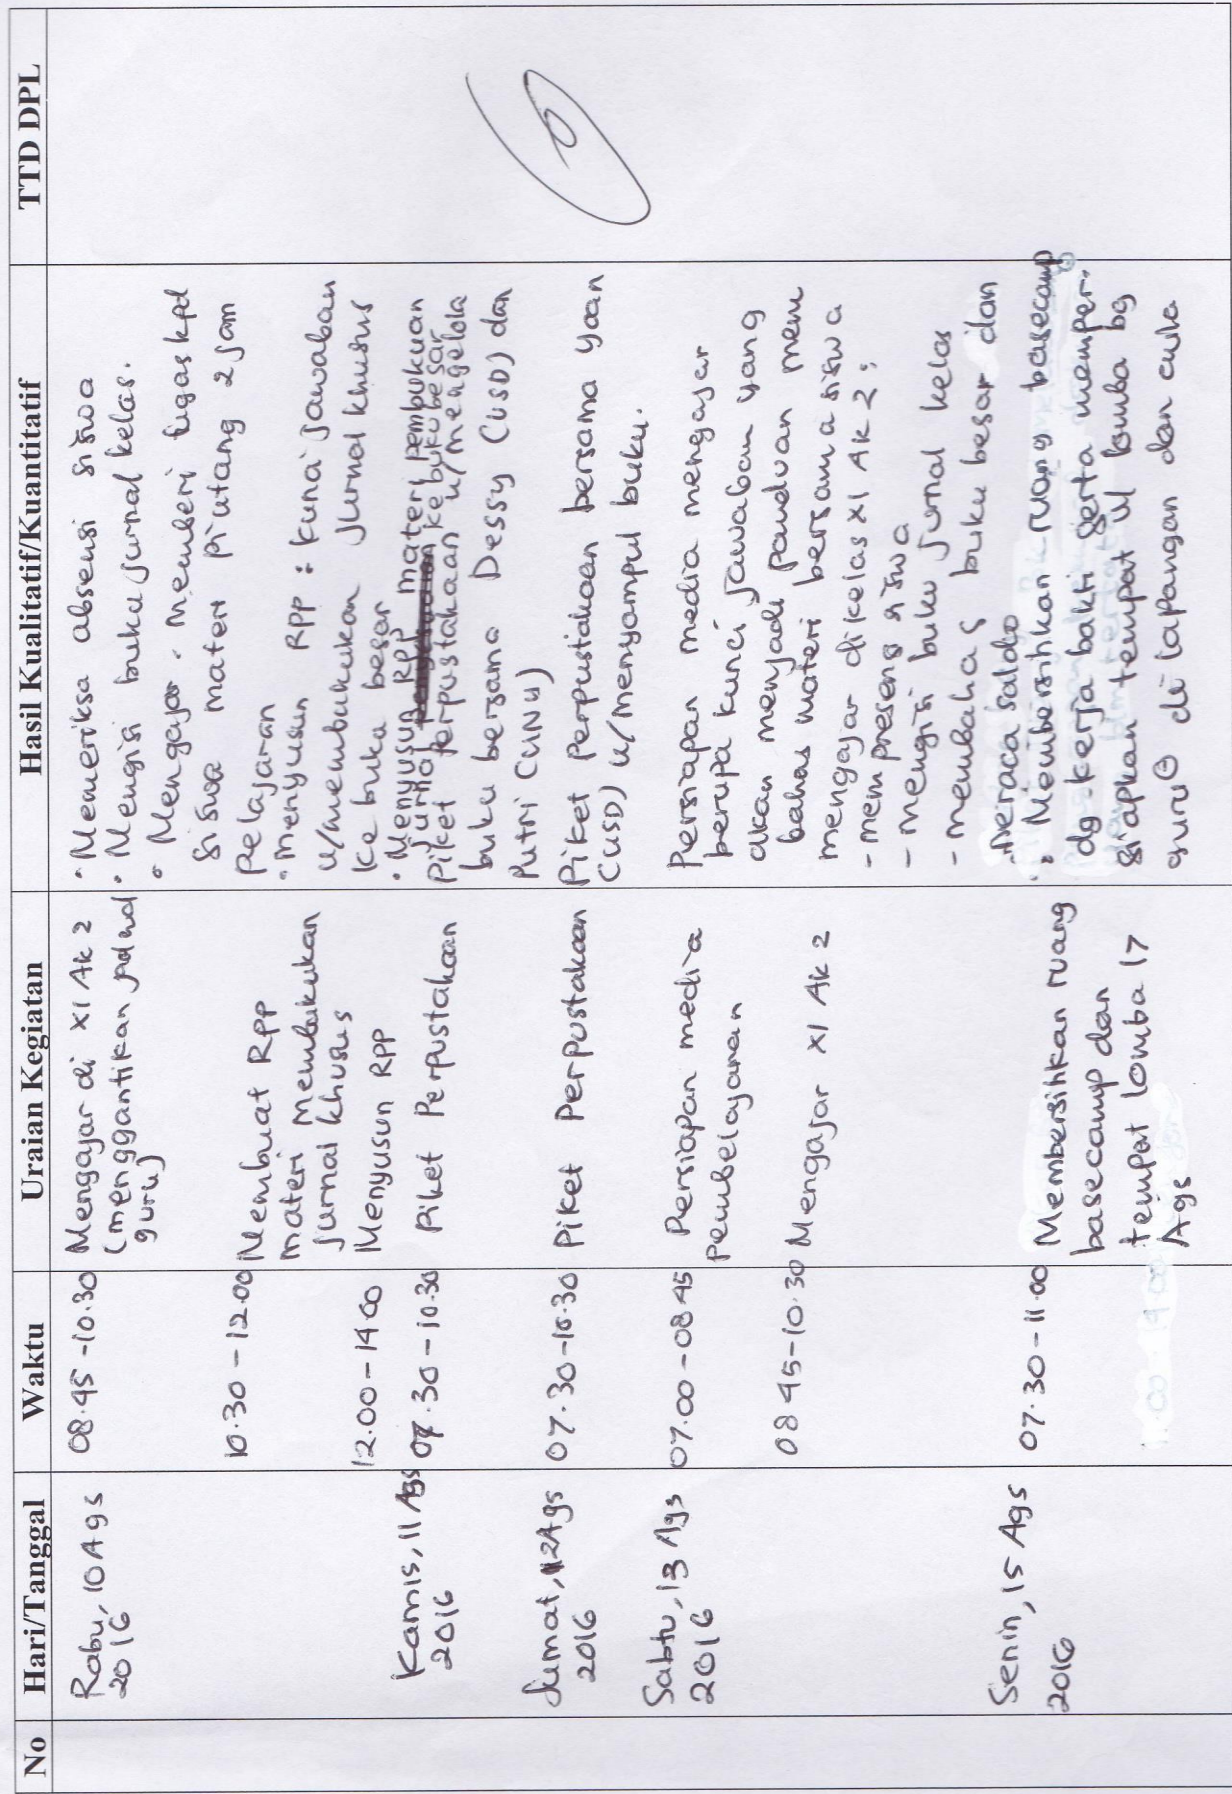 No Hari/Tanggal Waktu Uraian Kegiatan Hasil Kualitatif/Kuantitatif TTD DPL
Rabu, 10 Ags
2016
08.45 - 10.30
Mengajar di XI Ak 2
(menggantikan jadwal
guru)
• Memeriksa absensi siswa
• Mengisi buku jurnal kelas.
• Mengajar. Memberi tugas kpd
siswa materi Piutang 2 jam
pelajaran
10.30 - 12.00
Membuat RPP
materi Membukukan
jurnal khusus
• menyusun RPP : kunci jawaban
u/membukukan Jurnal khusus
ke buku besar
12.00 - 14.00
Menyusun RPP
• Menyusun RPP materi pembukuan
Jurnal ke buku besar
Kamis, 11 Ags
2016
07.30 - 10.30
Piket Perpustakaan
Piket Perpustakaan u/mengelola
buku bersama Dessy (USD) dan
Putri (UNY)
Jumat, 12 Ags
2016
07.30 - 10.30
Piket Perpustakaan
Piket Perpustakaan bersama Yoan
(USD) u/menyampul buku.
Sabtu, 13 Ags
2016
07.00 - 08.45
Persiapan media
pembelajaran
Persiapan media mengajar
berupa kunci jawaban yang
akan menjadi panduan mem
bahas materi bersama siswa
08.45 - 10.30
Mengajar XI Ak 2
mengajar di kelas XI AK 2 :
- mempresensi siswa
- mengisi buku jurnal kelas
- membahas buku besar dan
Neraca saldo
Senin, 15 Ags
2016
07.30 - 11.00
Membersihkan ruang
basecamp dan
tempat lomba 17
Ags
• Membersihkan ruang basecamp
dg kerja bakti serta memper-
siapkan tempat u/ lomba bg
guru² di lapangan dan aula